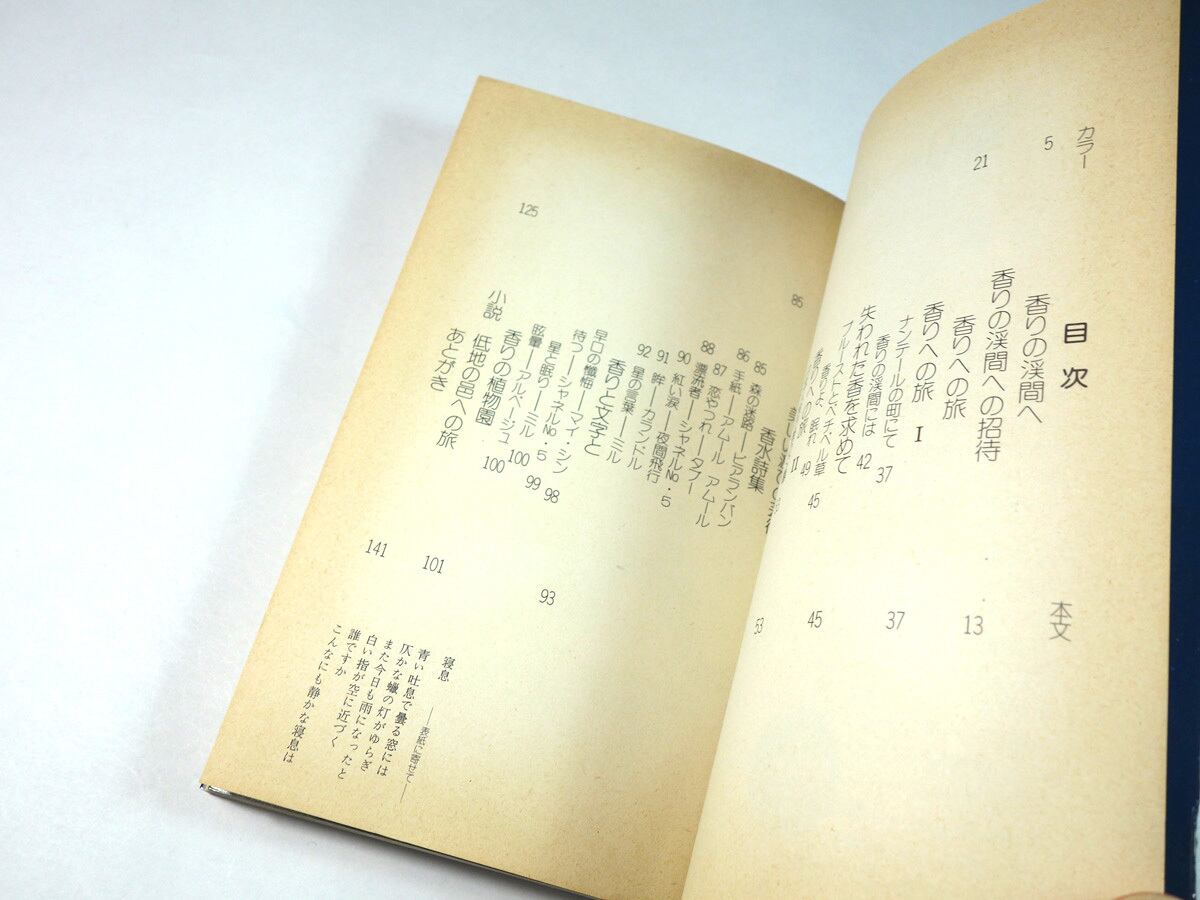 目次
カラー
本文
香りの渓間へ
5
香りの渓間への招待 13
21 香りへの旅
香りへの旅 I 37
ナンテールの町にて 37
香りの渓間には 42
失われた香を求めて 45
プルーストとベチベル草 45
香りよ、眠れ 49
香りへの旅 II 53
85 香水詩集
85 森の迷路――ビアランバン
86 手紙――アムール アムール
87 恋やつれ――タブー
88 漂流者――シャネルNo・5
90 紅い涙――夜間飛行
91 眸――カランドル
92 星の言葉――ミル
香りと文字と 93
早口の懺悔――マイ・シン 98
待つ――シャネルNo・5 99
星と眠り――ミル 100
眩暈――アルページュ 100
香りの植物園 101
125 小説 低地の邑への旅
あとがき 141
寝息 ――表紙に寄せて――
青い吐息で曇る窓には
仄かな蠟の灯がゆらぎ
また今日も雨になったと
白い指が空に近づく
誰ですか
こんなにも静かな寝息は